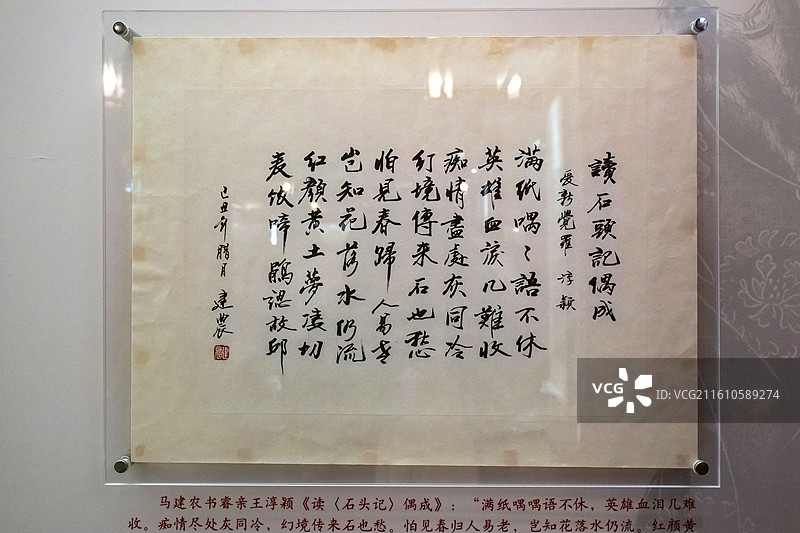 讀石頭記偶成
愛新覺羅 淳颖
满纸喁〻語不休
英雄血淚几難收
痴情盡處灰同冷
幻境傳来石也愁
怕見春歸人易老
岂知花落水仍流
红顔黄土夢凄切
麦饭啼鹃認故邱
己丑年腊月 建農
马建农书睿亲王淳颖《读〈石头记〉偶成》：“满纸喁喁语不休，英雄血泪几难
收。痴情尽处灰同冷，幻境传来石也愁。怕见春归人易老，岂知花落水仍流。红颜黄
VCG
ID:VCG211610589274